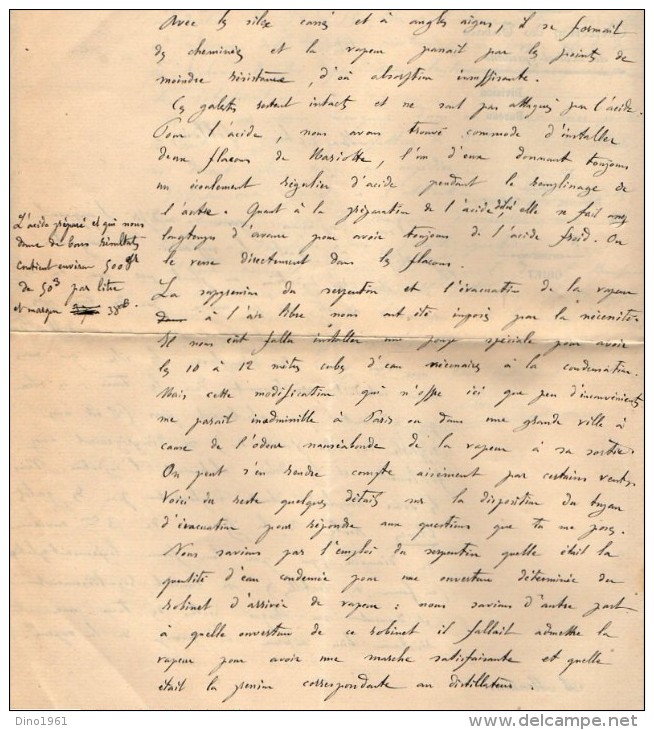 Avec les silex cassés et à angles aigus, il se formait
des cheminées et la vapeur passait par les points de
moindre résistance, d'où absorption insuffisante.
Les galets restent intacts et ne sont pas attaqués par l'acide.
Pour l'acide, nous avons trouvé commode d'installer
deux flacons de Mariotte, l'un d'eux donnant toujours
un écoulement régulier d'acide pendant le remplissage de
l'autre. Quant à la préparation de l'acide elle se fait
longtemps d'avance pour avoir toujours de l'acide froid. On
le verse directement dans les flacons.
L'acide préparé et qui nous
donne de bons résultats
contient environ 500 gr
de par litre
et marque
La suppression du serpentin et l'évacuation de la vapeur
à l'air libre nous ont été imposés par la nécessité.
Il nous eût fallu installer une pompe spéciale pour avoir
les 10 à 12 mètres cubes d'eau nécessaires à la condensation.
Mais cette modification qui n'offre ici que peu d'inconvénients
me parait inadmissible à Paris ou dans une grande ville à
cause de l'odeur nauséabonde de la vapeur à sa sortie.
On peut s'en rendre compte aisément par certains vents.
Voici du reste quelques détails sur la disposition du tuyau
d'évacuation pour répondre aux questions que tu me poses.
Nous savions par l'emploi du serpentin quelle était la
quantité d'eau condensée pour une ouverture déterminée du
robinet d'arrivée de vapeur : nous savions d'autre part
à quelle ouverture de ce robinet il fallait admettre la
vapeur pour avoir une marche satisfaisante et quelle
était la pression correspondante au distillateur.
Dino1961
© www.delcampe.net